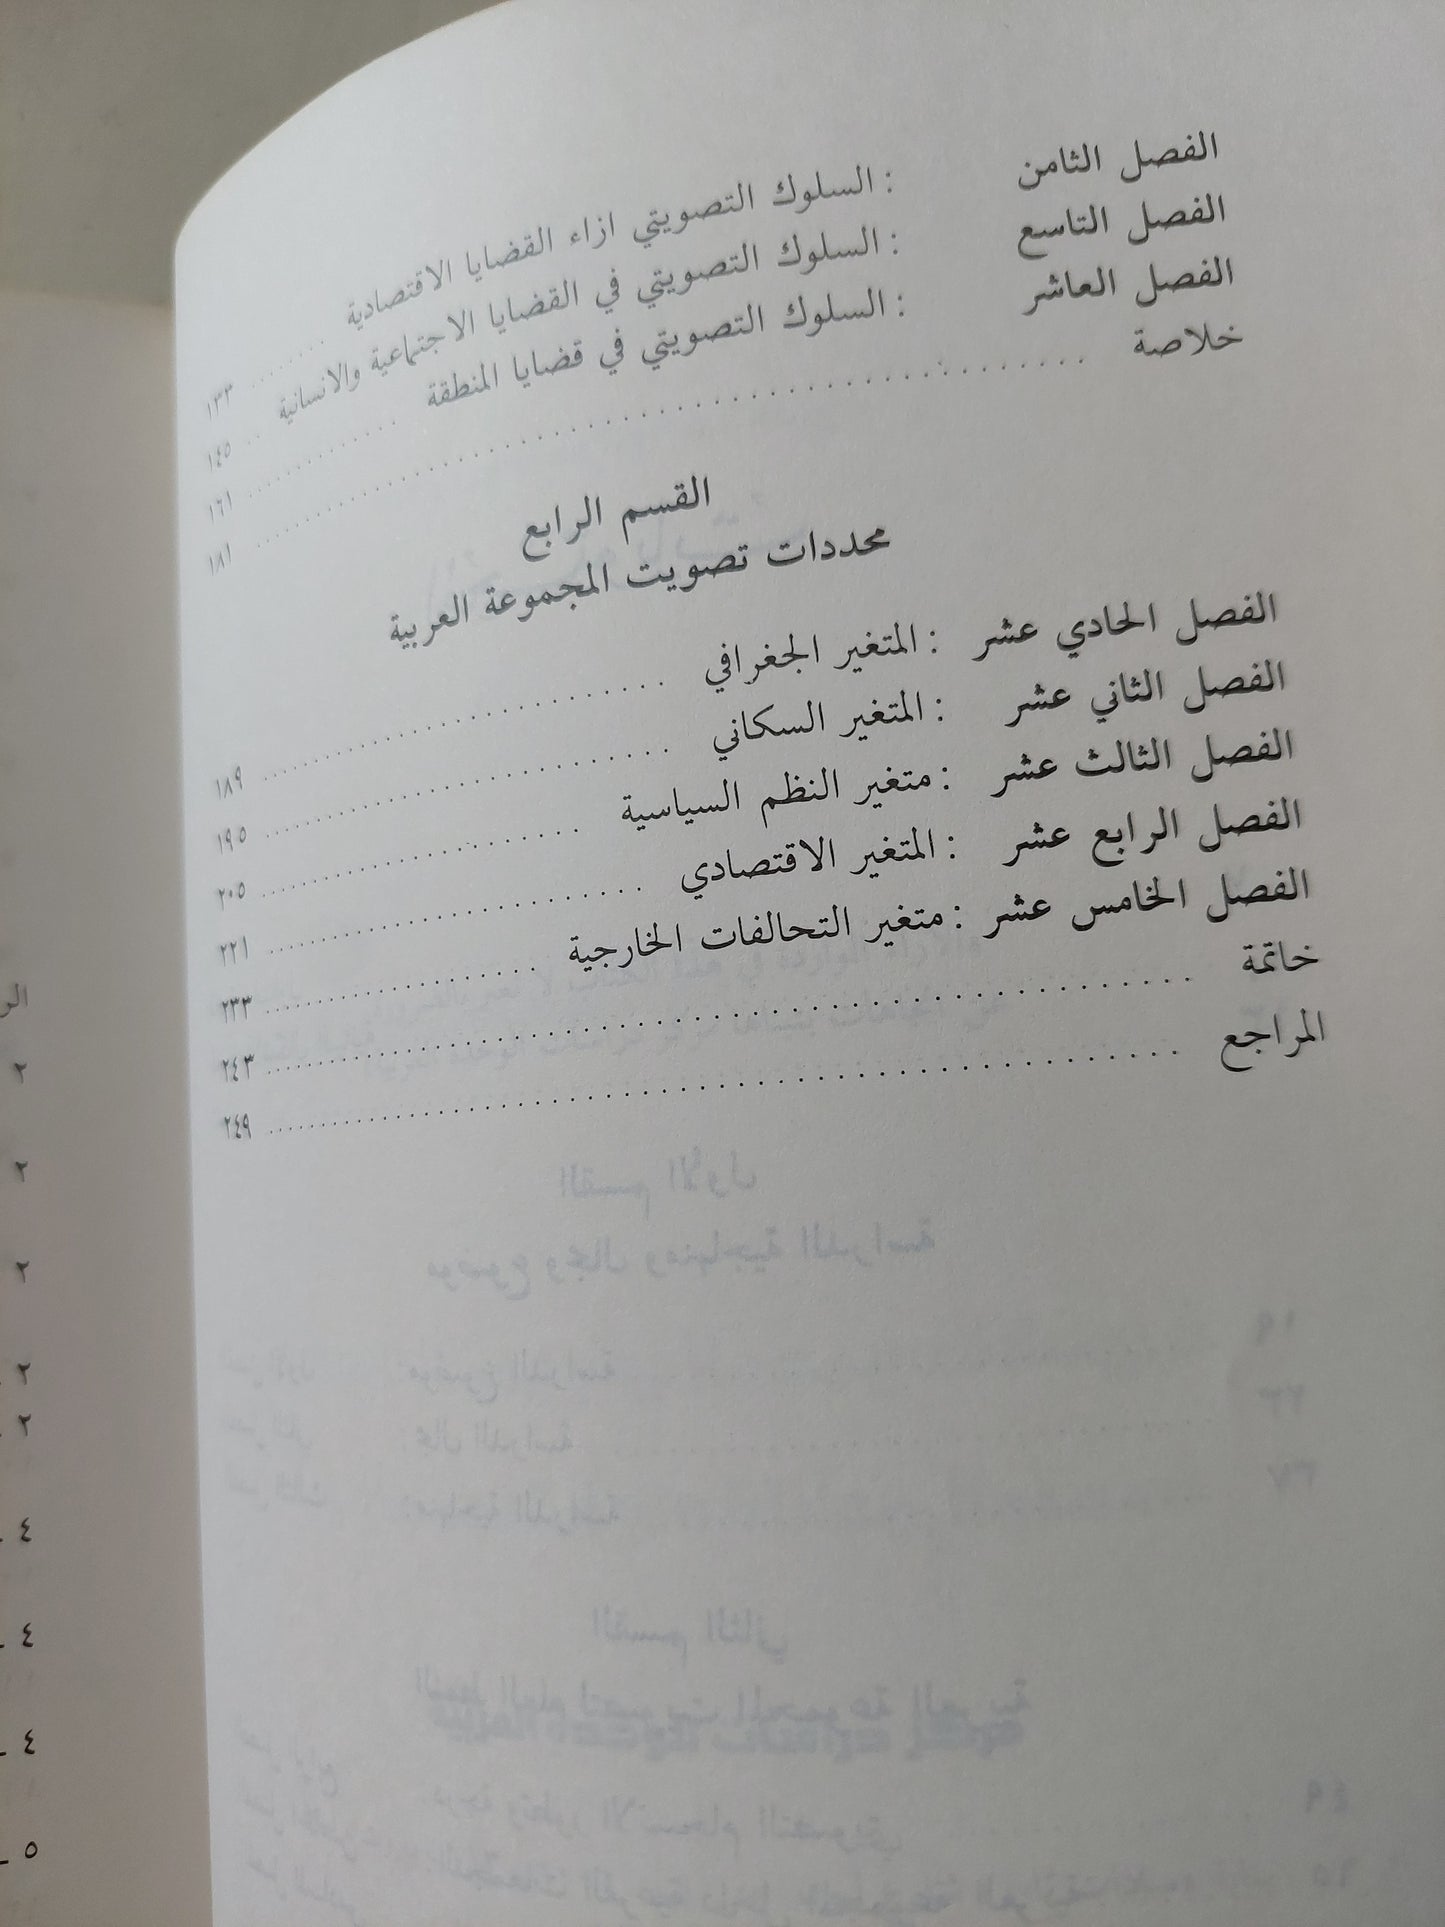 الفصل الثامن : السلوك التصويتي ازاء القضايا الاقتصادية ١٣٣
الفصل التاسع : السلوك التصويتي في القضايا الاجتماعية والانسانية ١٤٥
الفصل العاشر : السلوك التصويتي في قضايا المنطقة ١٦١
خلاصة ١٨١
القسم الرابع
محددات تصويت المجموعة العربية
الفصل الحادي عشر : المتغير الجغرافي ١٨٩
الفصل الثاني عشر : المتغير السكاني ١٩٥
الفصل الثالث عشر : متغير النظم السياسية ٢٠٥
الفصل الرابع عشر : المتغير الاقتصادي ٢٢١
الفصل الخامس عشر : متغير التحالفات الخارجية ٢٣٣
خاتمة ٢٤٣
المراجع ٢٤٩
٢
٢
٢
٢
٢
٤
٤ -
٤ -
٥ -